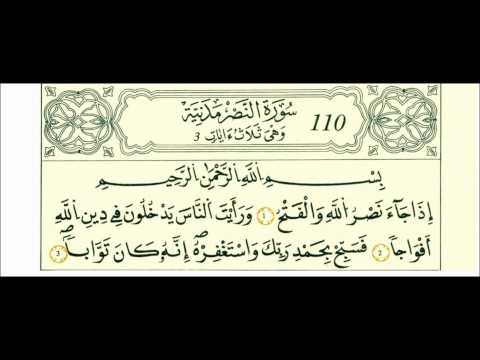 سُورَةُ النَّصْرِ مَدَنِيَّة 110
وَهِيَ ثَلَاثُ ءَايَاتٍ 3
بِسْمِ اللَّهِ الرَّحْمَٰنِ الرَّحِيمِ
إِذَا جَآءَ نَصْرُ اللَّهِ وَالْفَتْحُ ١ وَرَأَيْتَ النَّاسَ يَدْخُلُونَ فِي دِينِ اللَّهِ
أَفْوَاجاً 2 فَسَبِّحْ بِحَمْدِ رَبِّكَ وَاسْتَغْفِرْهُ إِنَّهُ كَانَ تَوَّاباً 3